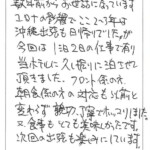 数年前からお世話になっています
コロナの影響でここ2〜3年は
沖縄出張も日帰りでしたが
今回は1泊2日の仕事で有り
当ホテルに久し振りに泊まらせて
頂きました。フロント係の方、
朝食係の方の対応も以前と
変わらず親切、丁寧でホッコリしました
又、食事もとても美味しかったです。
次回の出張も楽しみにしています